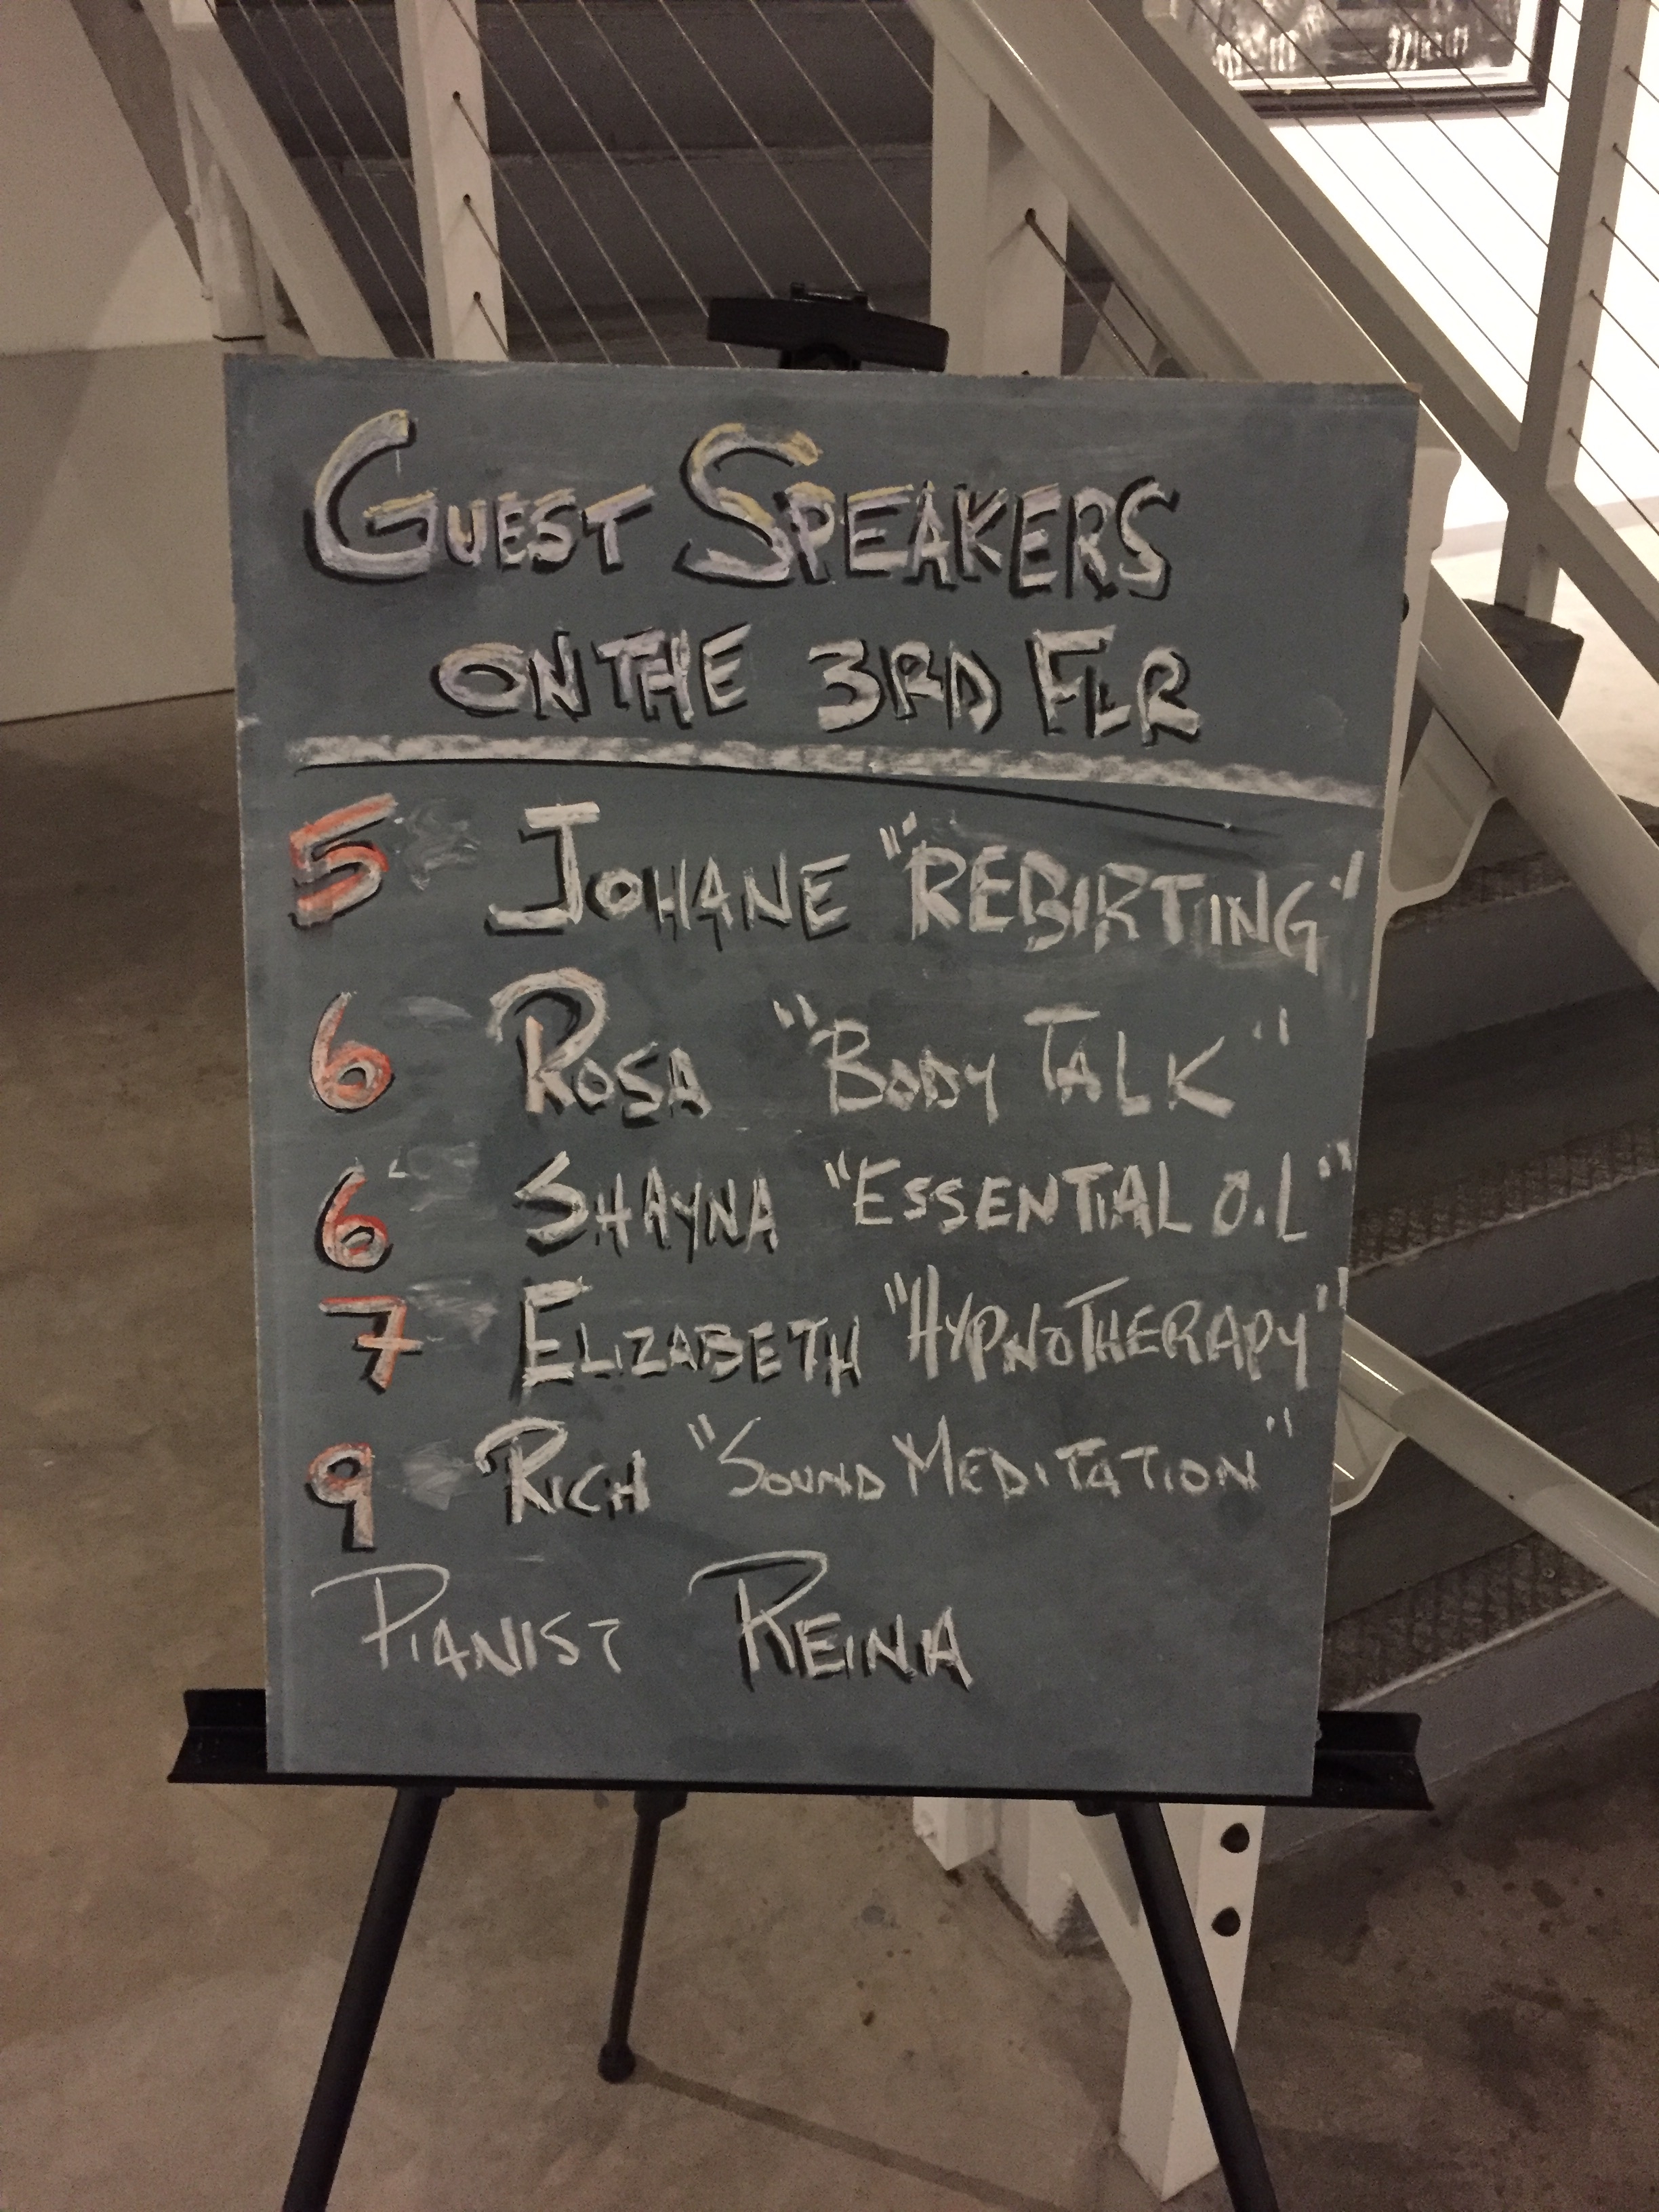 GUEST SPEAKERS
ON THE 3RD FLR
5 JOHANE "REBIRTING"
6 ROSA "BODY TALK"
6 SHAYNA "ESSENTIAL OIL"
7 ELIZABETH "HYPNOTHERAPY"
9 RICH "SOUND MEDITATION"
PIANIST REINA